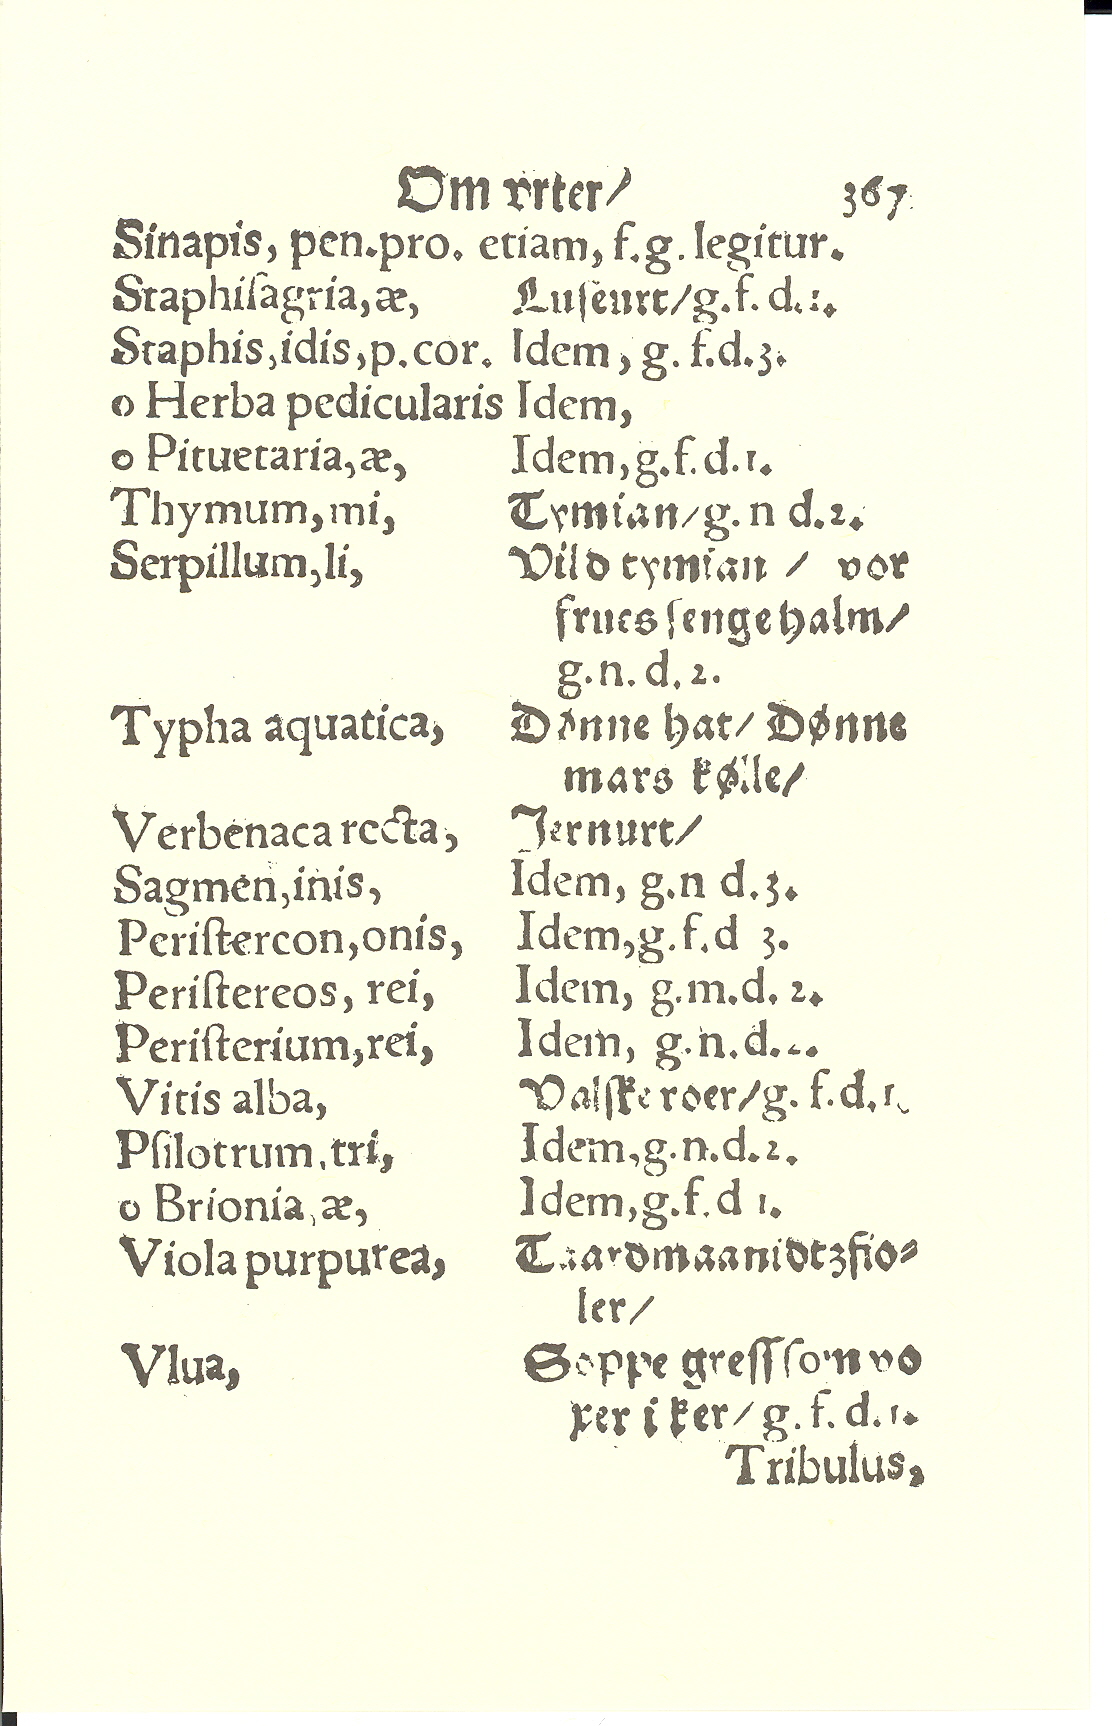 Om vrter/ 367.
Sinapis, pen.pro. etiam, f.g. legitur.
Staphiſagria,æ, Luſeurt/g.f.d.1.
Staphis,idis,p.cor. Idem, g. f.d.3.
o Herba pedicularis Idem,
o Pituetaria,æ, Idem,g.f.d.1.
Thymum,mi, Tymian/g.n d.2.
Serpillum,li, Vild tymian / vor
frues ſenge halm/
g.n.d.2.
Typha aquatica, Dønne hat/ Dønne
mars kølle/
Verbenaca recta, Jernurt/
Sagmen,inis, Idem, g.n d.3.
Periſtercon,onis, Idem,g.f.d 3.
Periſtereos, rei, Idem, g.m.d.2.
Periſterium,rei, Idem, g.n.d.2.
Vitis alba, Valſke roer/g.f.d.1.
Pſilotrum,tri, Idem,g.n.d.2.
o Brionia,æ, Idem,g.f.d 1.
Viola purpurea,
ler/
Vlua, Soppe greſſ ſom vo
xer i ker/g.f.d.1.
Tribulus,